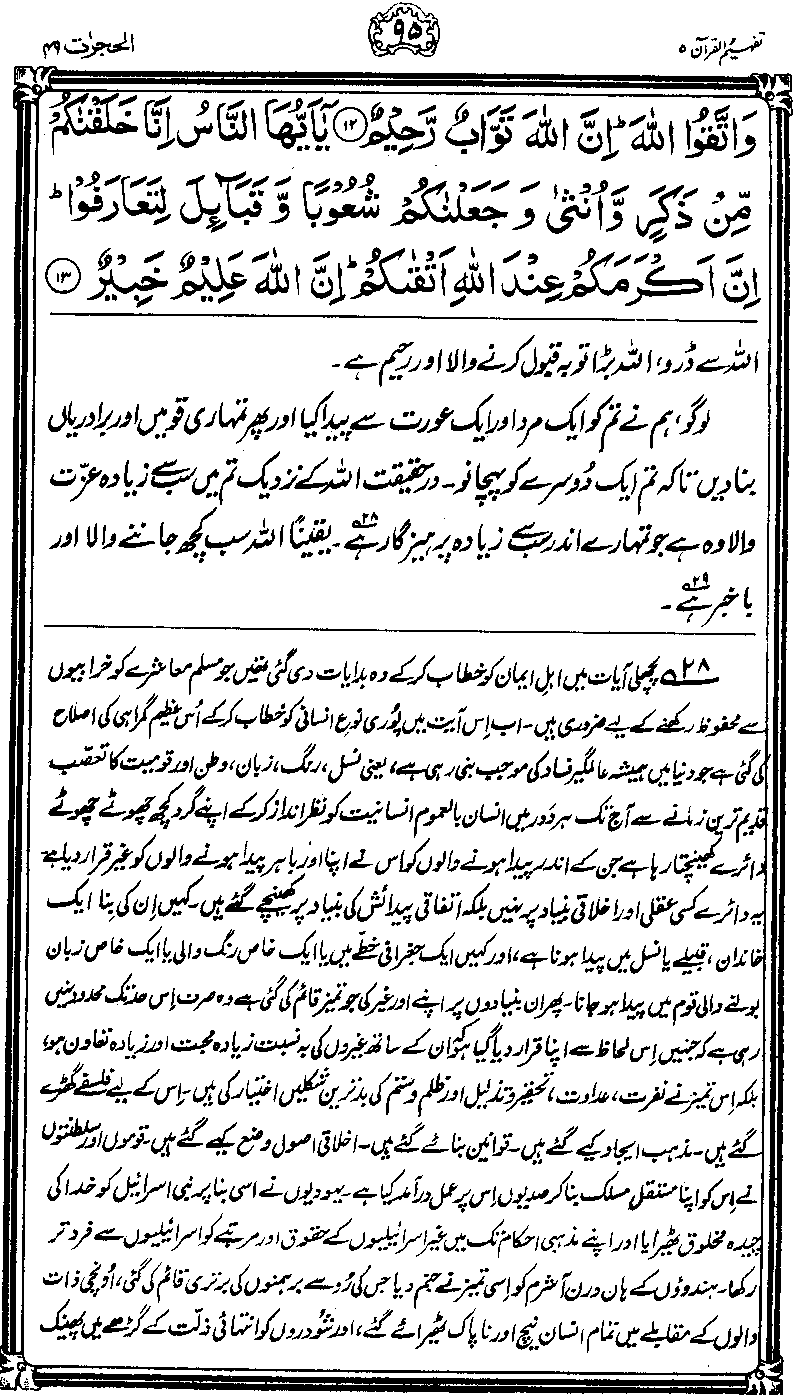 تفہیم القرآن ۵
۹۵
الحجرات ۴۹
وَاتَّقُوا اللّٰهَ ؕ اِنَّ اللّٰهَ تَوَّابٌ رَّحِيْمٌ ﴿۱۲﴾ يٰۤاَيُّهَا النَّاسُ اِنَّا خَلَقْنٰكُمْ
مِّنْ ذَكَرٍ وَّاُنْثٰى وَ جَعَلْنٰكُمْ شُعُوْبًا وَّ قَبَآئِلَ لِتَعَارَفُوْا ؕ
اِنَّ اَكْرَمَكُمْ عِنْدَ اللّٰهِ اَتْقٰىكُمْ ؕ اِنَّ اللّٰهَ عَلِيْمٌ خَبِيْرٌ ﴿۱۳﴾
اللہ سے ڈرو، اللہ بڑا توبہ قبول کرنے والا اور رحیم ہے۔
لوگو، ہم نے تم کو ایک مرد اور ایک عورت سے پیدا کیا اور پھر تمہاری قومیں اور برادریاں
بنا دیں تاکہ تم ایک دُوسرے کو پہچانو۔ درحقیقت اللہ کے نزدیک تم میں سب سے زیادہ عزّت
والا وہ ہے جو تمہارے اندر سب سے زیادہ پرہیزگار ہے۲۸۔ یقیناً اللہ سب کچھ جاننے والا اور
باخبر ہے۲۹۔
۲۸ پچھلی آیات میں اہل ایمان کو خطاب کرکے وہ ہدایات دی گئی تھیں جو مسلم معاشرے کو خرابیوں
سے محفوظ رکھنے کے لیے ضروری ہیں۔ اب اِس آیت میں پُوری نوعِ انسانی کو خطاب کرکے اُس عظیم گمراہی کی اصلاح
کی گئی ہے جو دنیا میں ہمیشہ عالمگیر فساد کی موجب بنی رہی ہے، یعنی نسل، رنگ، زبان، وطن اور قومیت کا تعصّب
قدیم ترین زمانے سے آج تک ہر دَور میں انسان بالعموم انسانیت کو نظر انداز کرکے اپنے گرد کچھ چھوٹے چھوٹے
دائرے کھینچتا رہا ہے جن کے اندر پیدا ہونے والوں کو اس نے اپنا اور باہر پیدا ہونے والوں کو غیر قرار دیا ہے
یہ دائرے کسی عقلی اور اخلاقی بنیاد پر نہیں بلکہ اتفاقی پیدائش کی بنیاد پر کھینچے گئے ہیں۔ کہیں اِن کی بنا ایک
خاندان، قبیلے یا نسل میں پیدا ہونا ہے، اور کہیں ایک جغرافی خطّے میں یا ایک خاص رنگ والی یا ایک خاص زبان
بولنے والی قوم میں پیدا ہو جانا۔ پھر ان بنیادوں پر اپنے اور غیر کی جو تمیز قائم کی گئی ہے وہ صرف اِس حد تک محدود نہیں
رہی ہے کہ جنہیں اِس لحاظ سے اپنا قرار دیا گیا ہو اُن کے ساتھ غیروں کی بہ نسبت زیادہ محبت اور زیادہ تعاون ہو،
بلکہ اِس تمیز نے نفرت، عداوت، تحقیر و تذلیل اور ظلم و ستم کی بدترین شکلیں اختیار کی ہیں۔ اِس کے لیے فلسفے گھڑے
گئے ہیں۔ مذہب ایجاد کیے گئے ہیں۔ قوانین بنائے گئے ہیں۔ اخلاقی اصول وضع کیے گئے ہیں۔ قوموں اور سلطنتوں
نے اِس کو اپنا مستقل مسلک بنا کر صدیوں اِس پر عمل درآمد کیا ہے۔ یہودیوں نے اسی بنا پر بنی اسرائیل کو خدا کی
چیدہ مخلوق ٹھیرایا اور اپنے مذہبی احکام تک میں غیر اسرائیلیوں کے حقوق اور مرتبے کو اسرائیلیوں سے فروتر
رکھا۔ ہندوؤں کے ہاں ورن آشرم کو اِسی تمیز نے جنم دیا جس کی رُو سے برہمنوں کی برتری قائم کی گئی، اُونچی ذات
والوں کے مقابلے میں تمام انسان نیچ اور ناپاک ٹھیرائے گئے، اور شُودروں کو انتہائی ذلّت کے گڑھے میں پھینک